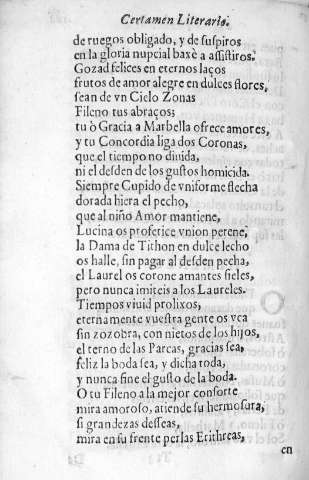 Certamen Literario.
de ruegos obligado, y de suspiros
en la gloria nupcial baxè a assistiros.
Gozad felices en eternos laços
frutos de amor alegre en dulces flores,
sean de vn Cielo Zonas
Fileno tus abraços;
tu ò Gracia a Marbella ofrece amores,
y tu Concordia liga dos Coronas,
que el tiempo no diuida,
ni el desden de los gustos homicida.
Siempre Cupido de vniforme flecha
dorada hiera el pecho,
que al niño Amor mantiene,
Lucina os proferice vnion perene,
la Dama de Tithon en dulce lecho
os halle, sin pagar al desden pecha,
el Laurel os corone amantes fieles,
pero nunca imiteis a los Laureles.
Tiempos viuid prolixos,
eternamente vuestra gente os vea
sin zozobra, con nietos de los hijos,
el terno de las Parcas, gracias sea,
feliz la boda sea, y dicha toda,
y nunca fine el gusto de la boda.
O tu Fileno a la mejor consorte
mira amoroso, atiende su hermosura,
si grandezas desseas,
mira en su frente perlas Erithreas,
en